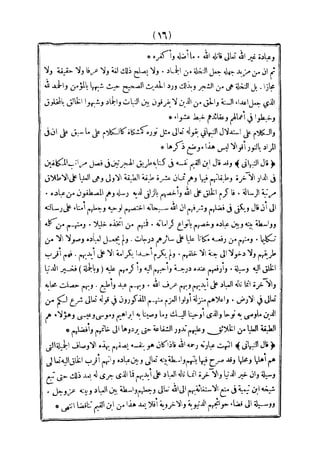 (١٦)
وعبادة غير الله تعالى قاتله الله . ما أضله وأكفره *
ثم ان من مزيد جهله جعل النخلة من الجماد . ولا يصلح ذلك لغة ولا عرفا ولا حقيقة ولا
مجازا . بل النخلة هى من الشجر وبذلك ورد الحديث الصحيح حيث شبهها بالمؤمن والحمد لله
الذى جعل اعداء السنة والحق من الذين لا يفرقون بين النبات والجماد وشبهوا الخالق بالمخلوق
وخبطوا فى أعمالهم وعقائدهم خبط عشواء *
والكلام على استدلال النبهانى بقوله تعالى مثل نوره كمشكاة كالكلام على ما سبق على ان فى
المراد بالنور أقوالا ليس هذا موضع ذكرها *
﴿قال النبهانى﴾ وقد قال ابن القيم نفسه فى كتابه طريق الهجرتين فى فصل مراتب المكلفين
فى الدار الآخرة وطبقاتهم فيها وهم ثمان عشرة طبقة الطبقة الاولى وهى العليا على الاطلاق
مرتبة الرسالة . فاكرم الخلق على الله وأخصهم بالزلفى لديه رسله وهم المصطفون من عباده .
الى أن قال ويكفى فى فضلهم وشرفهم ان الله سبحانه اختصهم بوحيه وجعلهم أمناء على رسالته
وواسطة بينه وبين عباده وخصهم بانواع كراماته . فمنهم من اتخذه خليلا . ومنهم من كلمه
تكليما . ومنهم من رفعه مكانا عليا على سائرهم درجات . ولم يجعل لعباده وصولا الا من
طريقهم ولا دخولا الى جنة الا خلفهم . ولم يكرم أحدا بكرامة الا على أيديهم . فهم أقرب
الخلق اليه وسيلة . وأرفعهم عنده درجة وأحبهم اليه وأكرمهم عليه (وبالجملة) فخير الدنيا
والآخرة انما ناله العباد على أيديهم وبهم عرف الله . وبهم عبد وأطيع . وبهم حصلت محابه
تعالى فى الارض . وأعلاهم منزلة أولوا العزم منهم المذكورون فى قوله تعالى شرع لكم من
الدين ماوصى به نوحا والذى أوحينا اليك وما وصينا به ابراهيم وموسى وعيسى وهؤلاء هم
الطبقة العليا من الخلائق وعليهم تدور الشفاعة حتى يردوها الى خاتمهم وأفضلهم *
﴿قال النبهانى﴾ انتهت عبارته رحمه الله فاذا كان هو بنفسه يصفهم بهذه الاوصاف الجليلة التى
هم أهلها ومحلها وقد صرح فيها بانهم واسطة بينه تعالى وبين عباده وانهم أقرب الخلق اليه تعالى
وسيلة وان خير الدنيا والآخرة انما ناله العباد على أيديهم فما الذى جرى له بعد ذلك حتى تبع
شيخه ابن تيمية فى منع الاستغاثة بهم الى الله تعالى وجعلهم واسطة بين العباد وبينه عز وجل .
ووسيلة الى قضاء حوائجهم الدنيوية والاخروية أفلا يعد هذا من ابن القيم تناقضا انتهى *